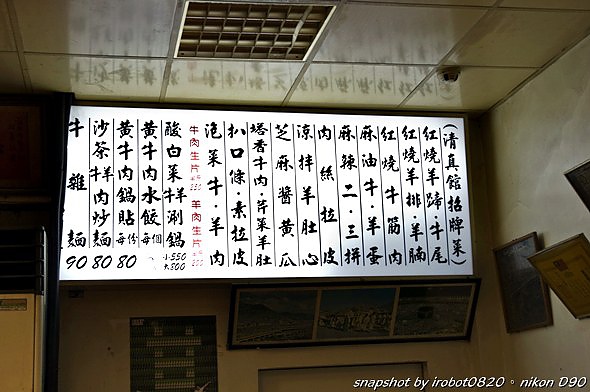 (清真館招牌菜)
紅燒羊蹄·牛尾
紅燒羊排·羊腩
紅燒牛筋肉
麻油牛·羊蛋
麻辣二·三拼
肉絲拉皮
涼拌羊肚心
芝麻醬黃瓜
塔香牛肉·芹菜羊肚
扒口條·素拉皮
泡菜牛·羊肉
牛肉生片 羊肉生片
酸白菜牛羊涮鍋 小550 大800
黃牛肉水餃 每個
黃牛肉鍋貼 每份 80
沙茶牛羊肉炒麵 80
牛雜麵 90
snapshot by irobot0820。nikon D90